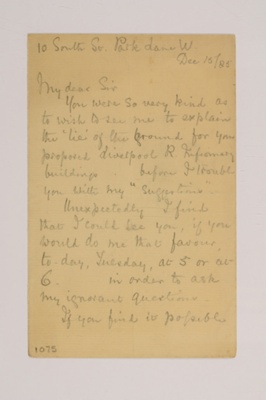 10 South St. Park Lane W
Dec 15/85
My dear Sir
You were so very kind as
to wish to see me to explain
the 'lie' of the ground for your
proposed Liverpool R. Infirmary
buildings before I trouble
you with my "suggestions".
Unexpectedly I find
that I could see you, if you
would do me that favour,
to-day, Tuesday, at 5 or at
6. in order to ask
my ignorant questions.
If you find it possible
1075